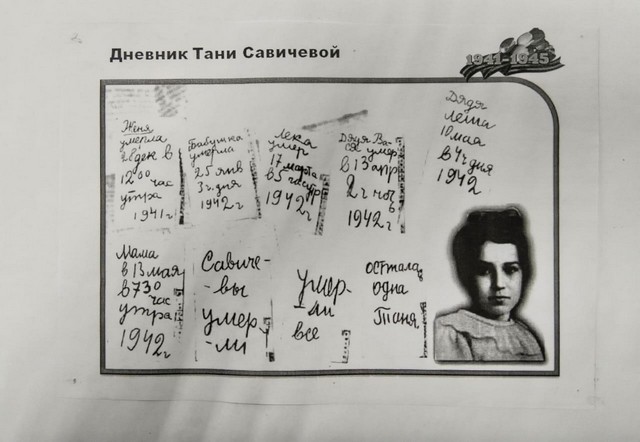 Дневник Тани Савичевой
1941-1945
Женя
умерла
28 дек в
12 00
час
утра
1941 г
Бабушка
умерла
25 янв
3 ч. дня
1942 г
Лека
умер
17
марта
в 5 час утр
1942 г
Дядя Ва-
ся умер
в 13 апр
2 ч ноч
1942 г
Дядя
Леша
10 мая
в 4 ч дня
1942
Мама
в 13 мая
в 7 30
час
утра
1942 г
Савиче-
-вы
умер-
-ли
Умер-
-ли
все
осталась
одна
Таня